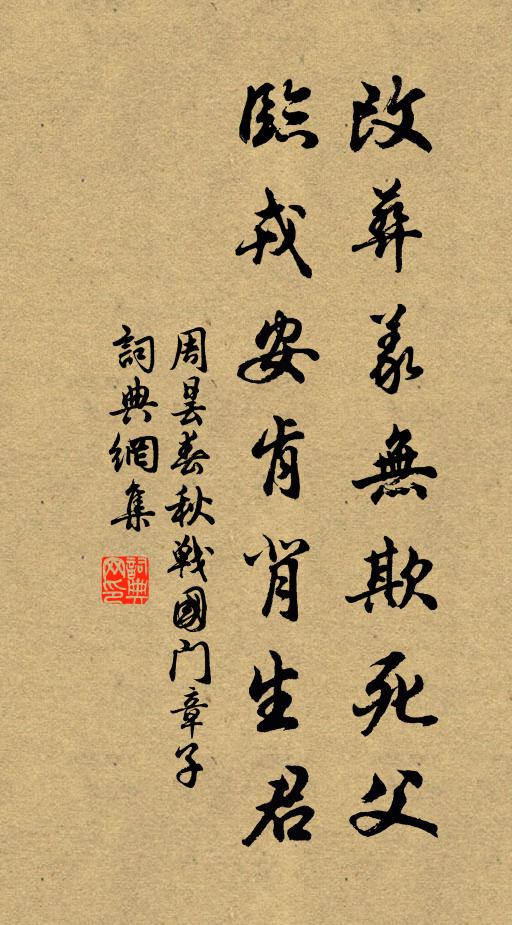 改葬義無欺死父
臨戎安肯背生君
周曇春秋戰國門章子
詞典網集
詞典網印